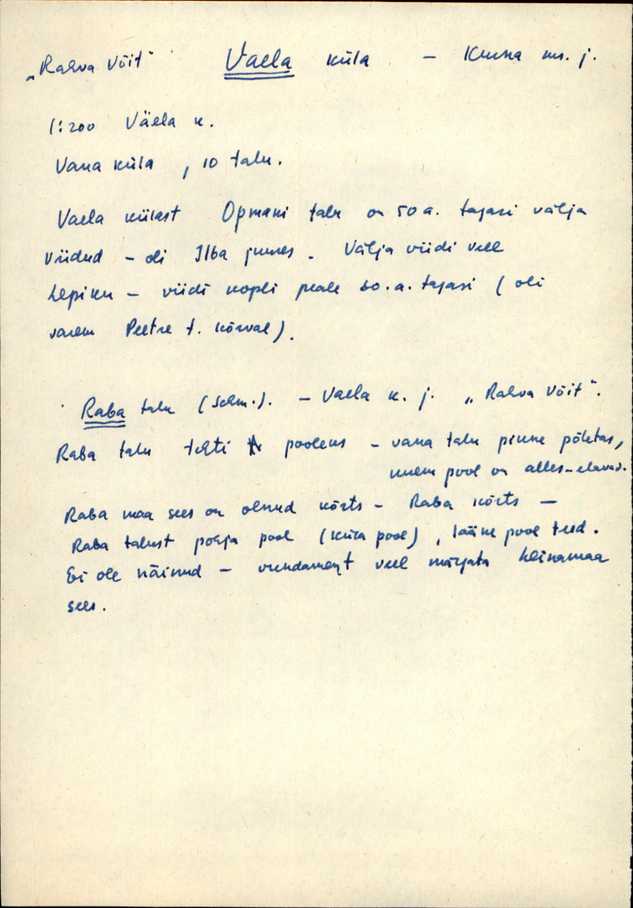 „Rahva Võit" Vaela küla – Kurna ms. j.
1:200 Väela k.
Vana küla, 10 talu.
Vaela külast Opmani talu on 50 a. tagasi välja
viidud – oli Ilba juures. Välja viidi veel
Lepiku – viidi kopli peale 60. a. tagasi (oli
varem Peetre t. kõrval).
Raba talu (selm.). – Vaela k. j. „Rahva Võit".
Raba talu tehti pooleks – vana talu pinne põletas,
uuem pool on alles – elavad.
Raba maa sees on olnud kõrts – Raba kõrts –
Raba talust põhja pool (küla pool), lääne pool teed.
Ei ole näinud – vundament veel märgata heinamaa
sees.